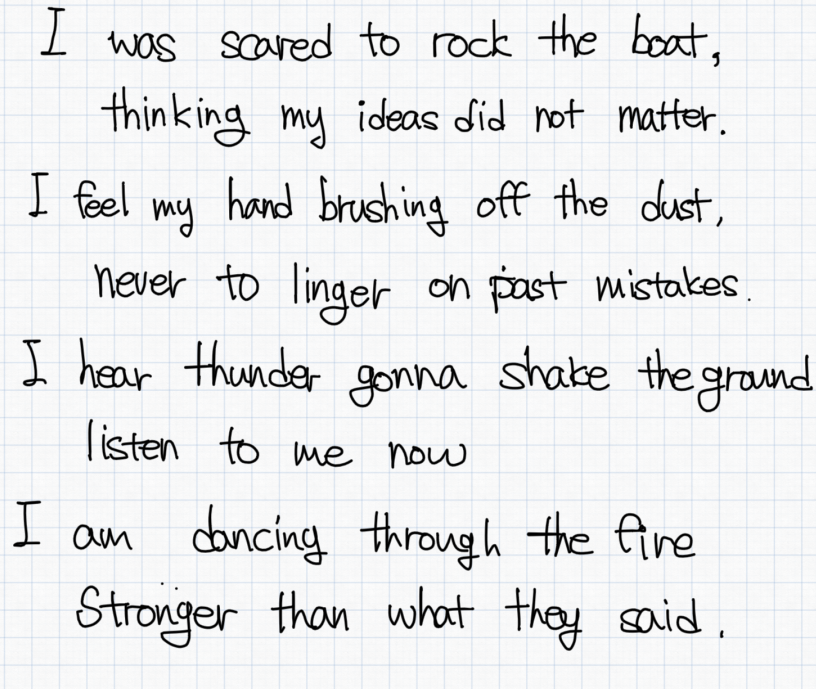 I was scared to rock the boat,
thinking my ideas did not matter.
I feel my hand brushing off the dust,
never to linger on past mistakes.
I hear thunder gonna shake the ground
listen to me now
I am dancing through the fire
Stronger than what they said.